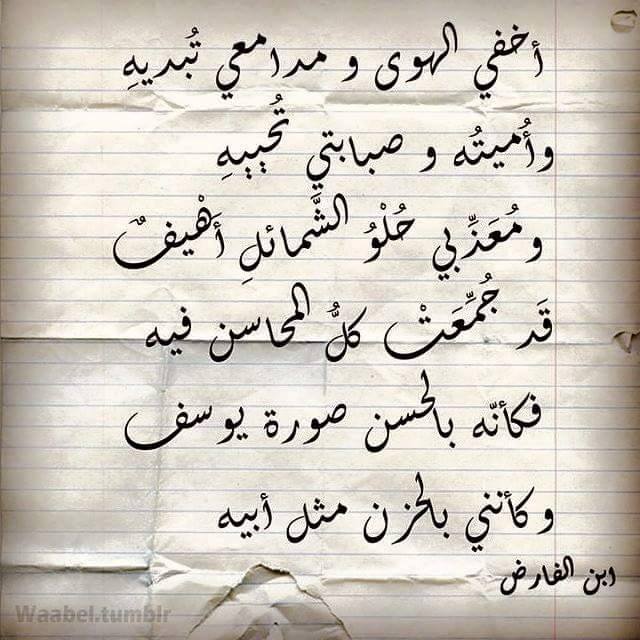 أخفي الهوى و مدامعي تُبديهِ
وأُميتُه و صبابتي تُحييهِ
ومُعَذِّبي حُلْوُ الشَّمائلِ أَهْيفٌ
قَد جُمِّعَتْ كلُّ المحاسن فيه
فكأنّه بالحسن صورة يوسف
وكأنني بالحزن مثل أبيه
ابن الفارض
Waabel.tumblr